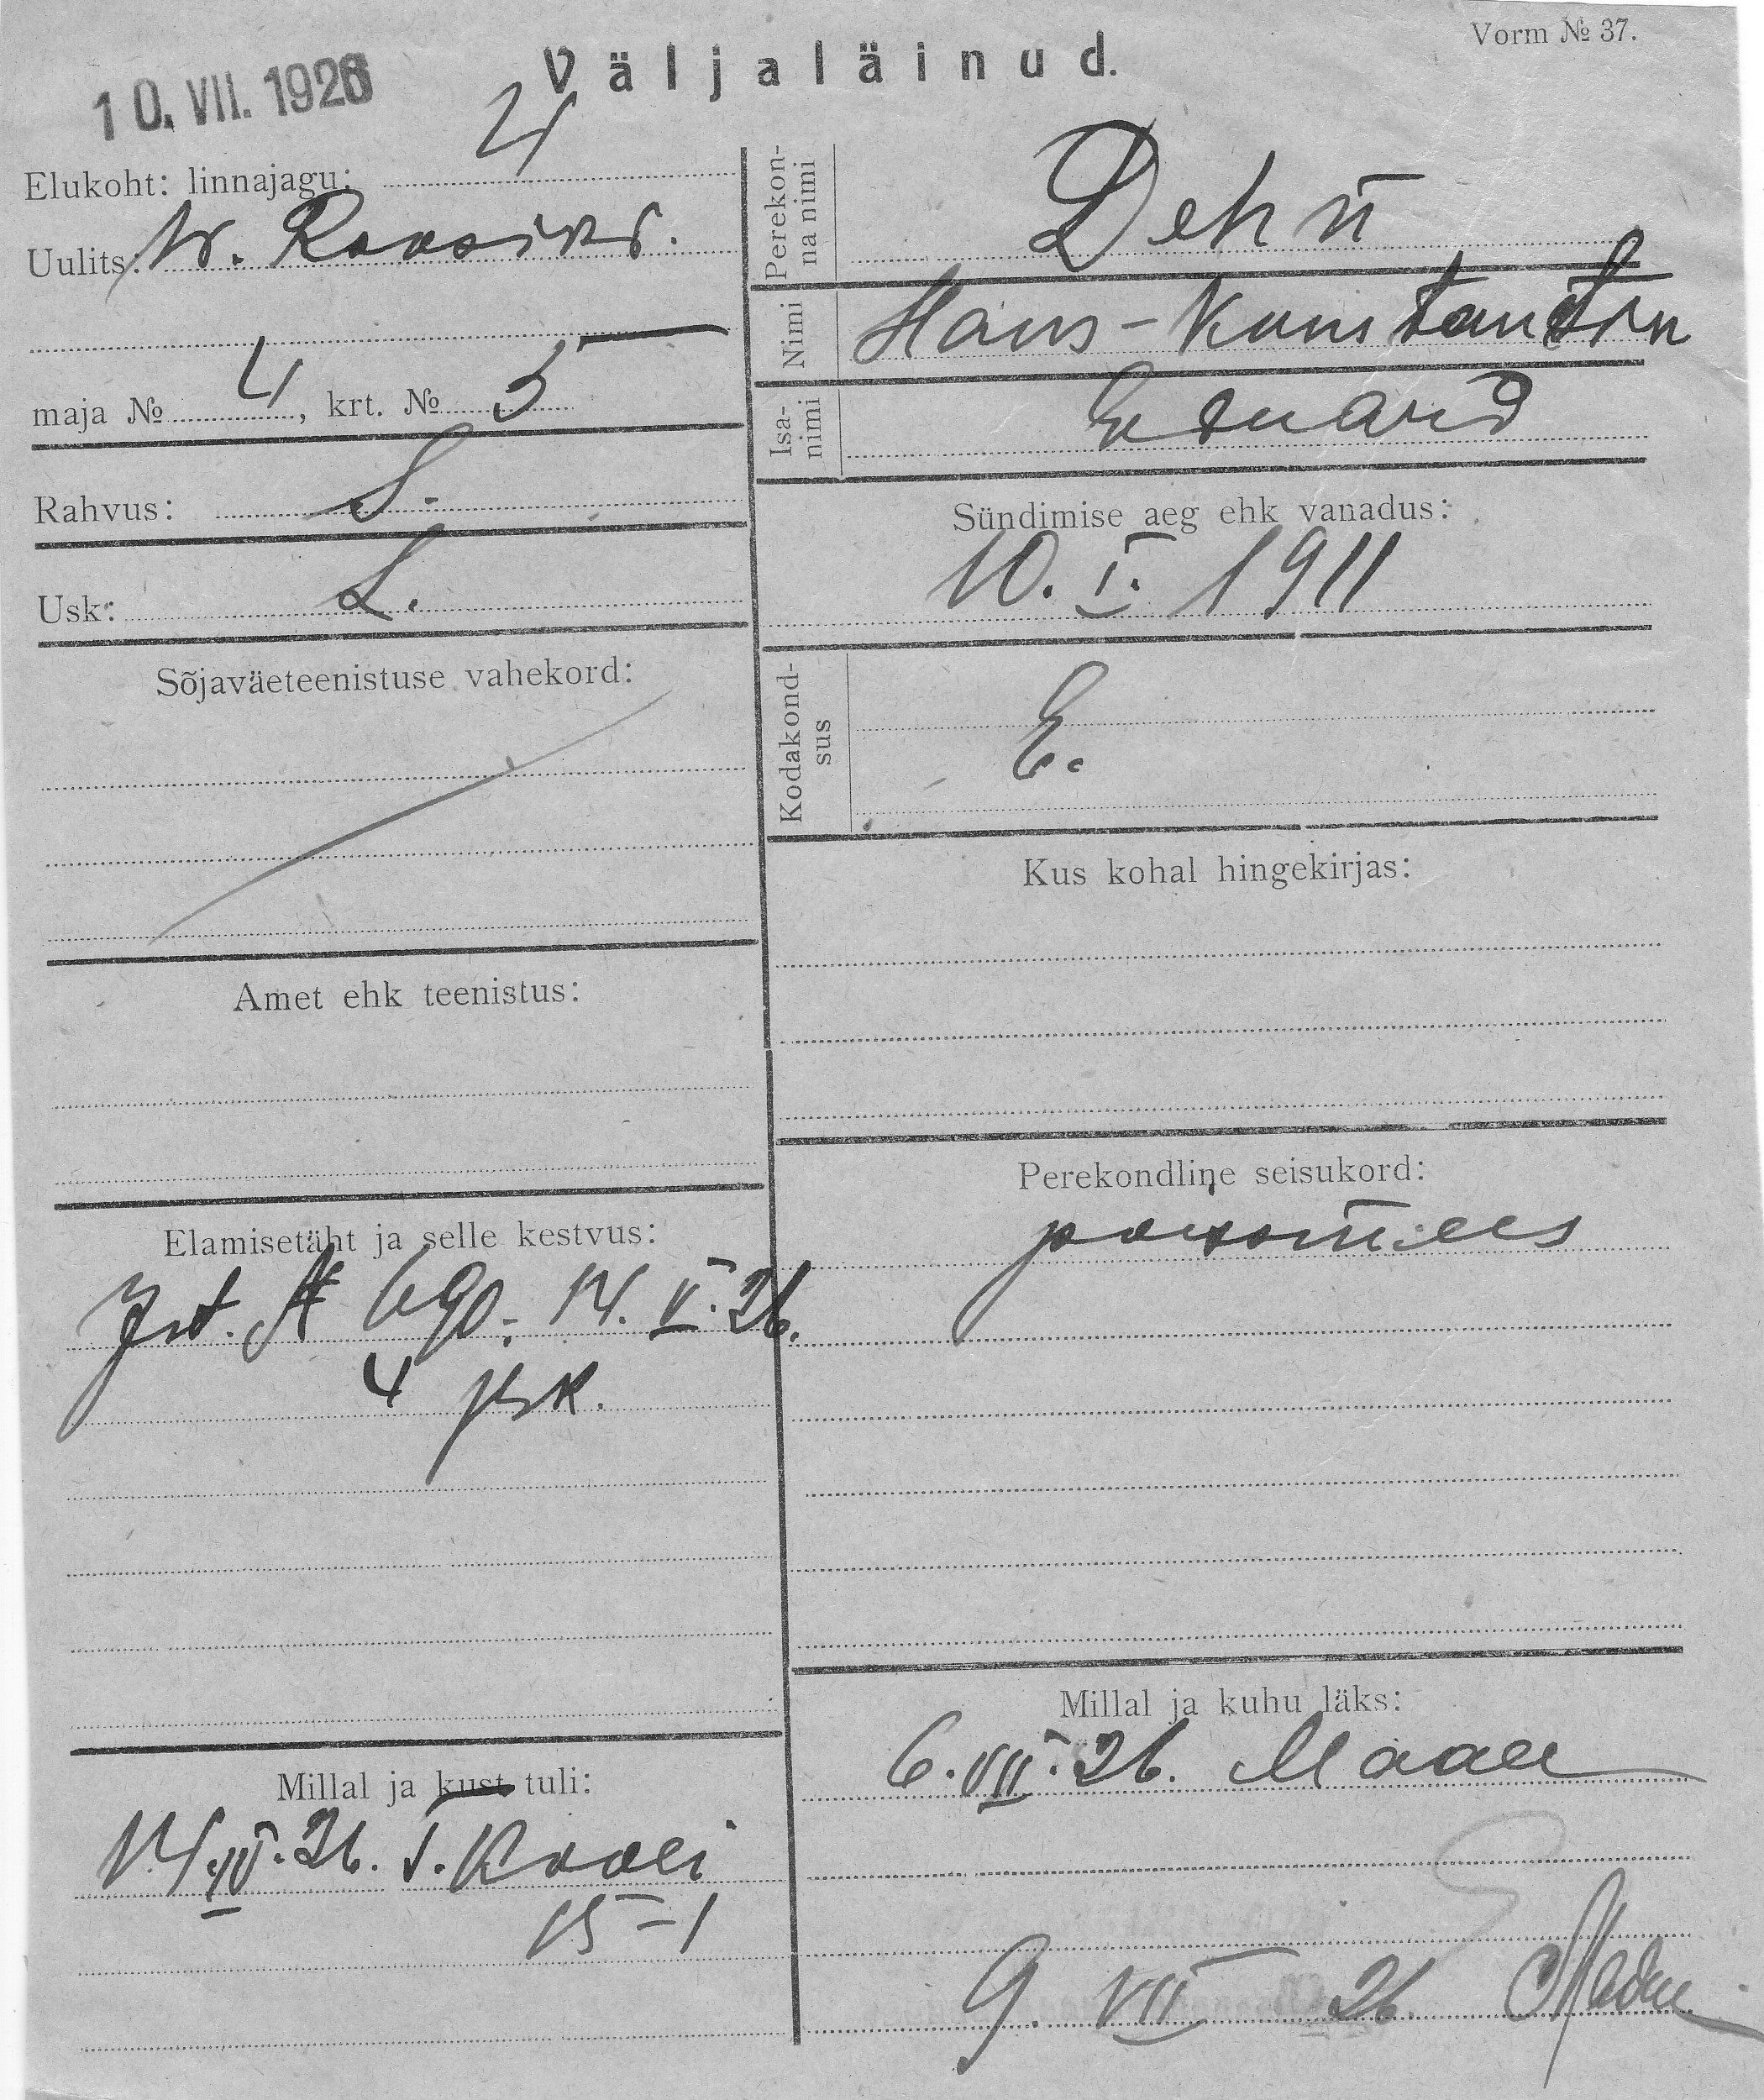 Vorm № 37.
Väljaläinud.
10. VII. 1926
Elukoht: linnajagu: 4
Uulits: W. Roosikr.
maja № 4, krt. № 5
Rahvus: S.
Usk: L.
Sõjaväeteenistuse vahekord:
Amet ehk teenistus:
Elamisetäht ja selle kestvus:
690. 14. V. 26.
4 jsk.
Millal ja kust tuli:
14. IV. 26. Kooli
15-1
Perekonna nimi
Dehn
Nimi
Hans-Konstantin
Isanimi
Eduard
Sündimise aeg ehk vanadus:
10. I. 1911
Kodakondsus
E.
Kus kohal hingekirjas:
Perekondline seisukord:
poissmees
Millal ja kuhu läks:
6. VII. 26. Maale
9. VII 26.